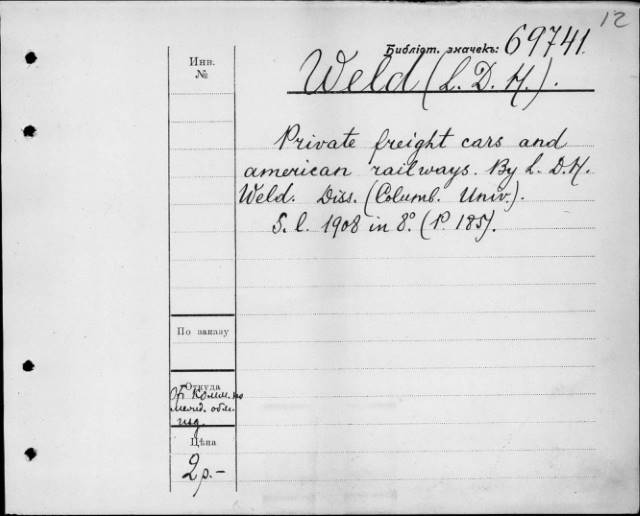 12
Библіот. значекъ: 69741.
Инв.
№
Weld (L. D. H.).
Private freight cars and
american railways. By L. D. H.
Weld. Diss. (Columb. Univ.).
S. l. 1908 in 8°. (P. 185).
По заказу
Откуда
От Комм. по
межд. обм.
изд.
Цѣна
2 р.-